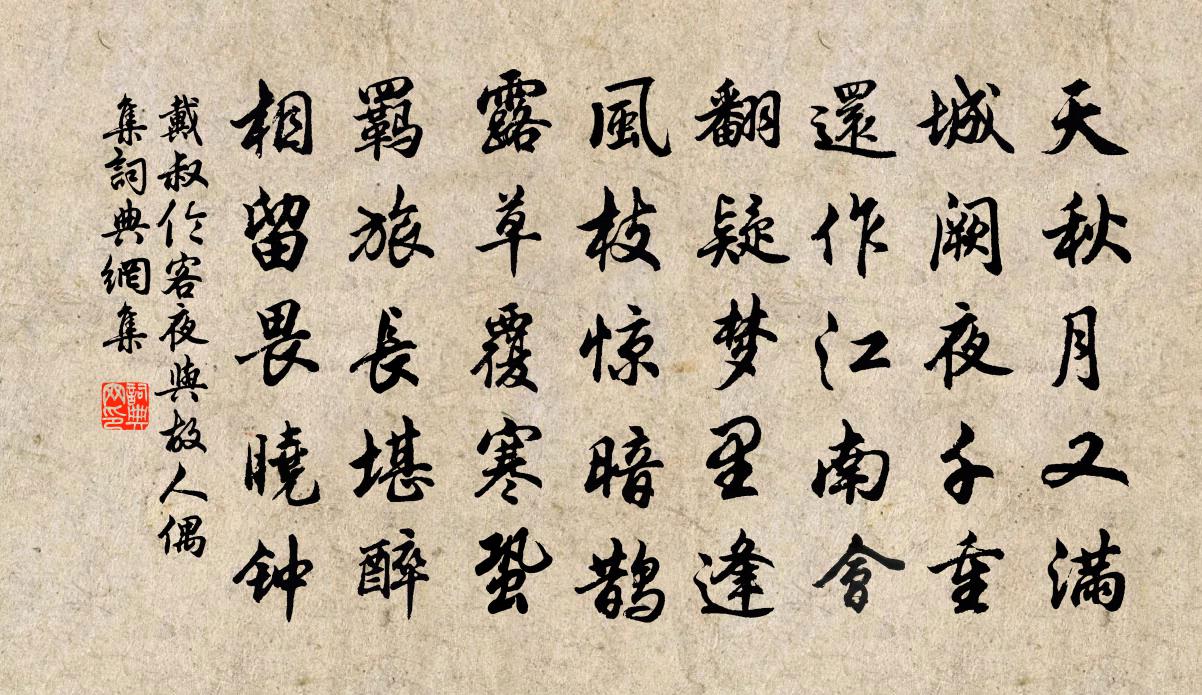 天秋月又满
城阙夜千重
還作江南會
翻疑梦里逢
風枝惊暗鹊
露草覆寒蛩
羁旅長堪醉
相留畏曉钟
戴叔伦客夜與故人偶
集詞典網集
詞典网印